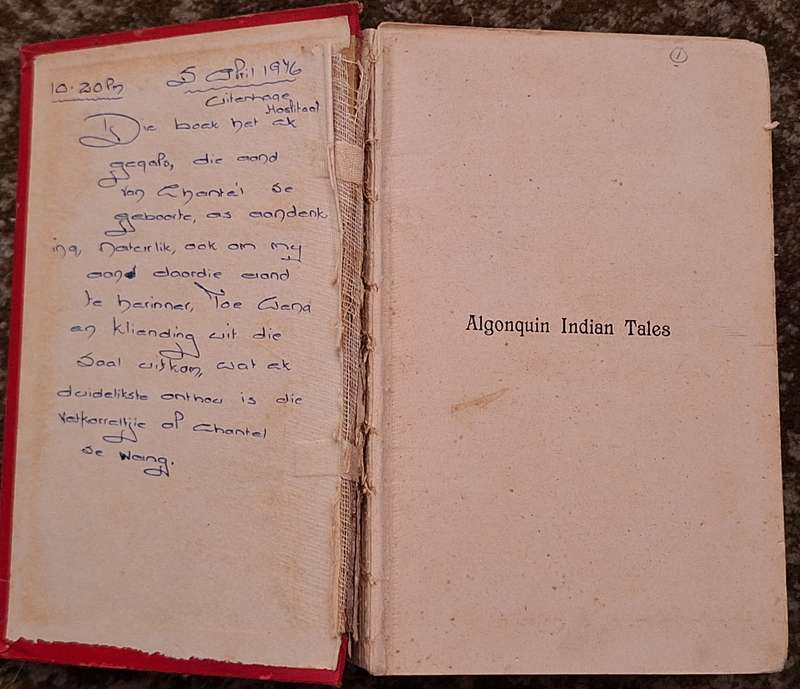 10.20Pm 5 April 1976
Uitenhage
Hosiitaal
Die boek het ek
gegaps, die aand
van Chantel se
geboorte, as aandenk
ing, natuurlik, ook om my
aan daardie aand
te herinner, Toe Wena
en kliending uit die
Saal uitkom, wat ek
duidelikste onthou is die
vetkorreltjie op Chantel
se wang.
1
Algonquin Indian Tales